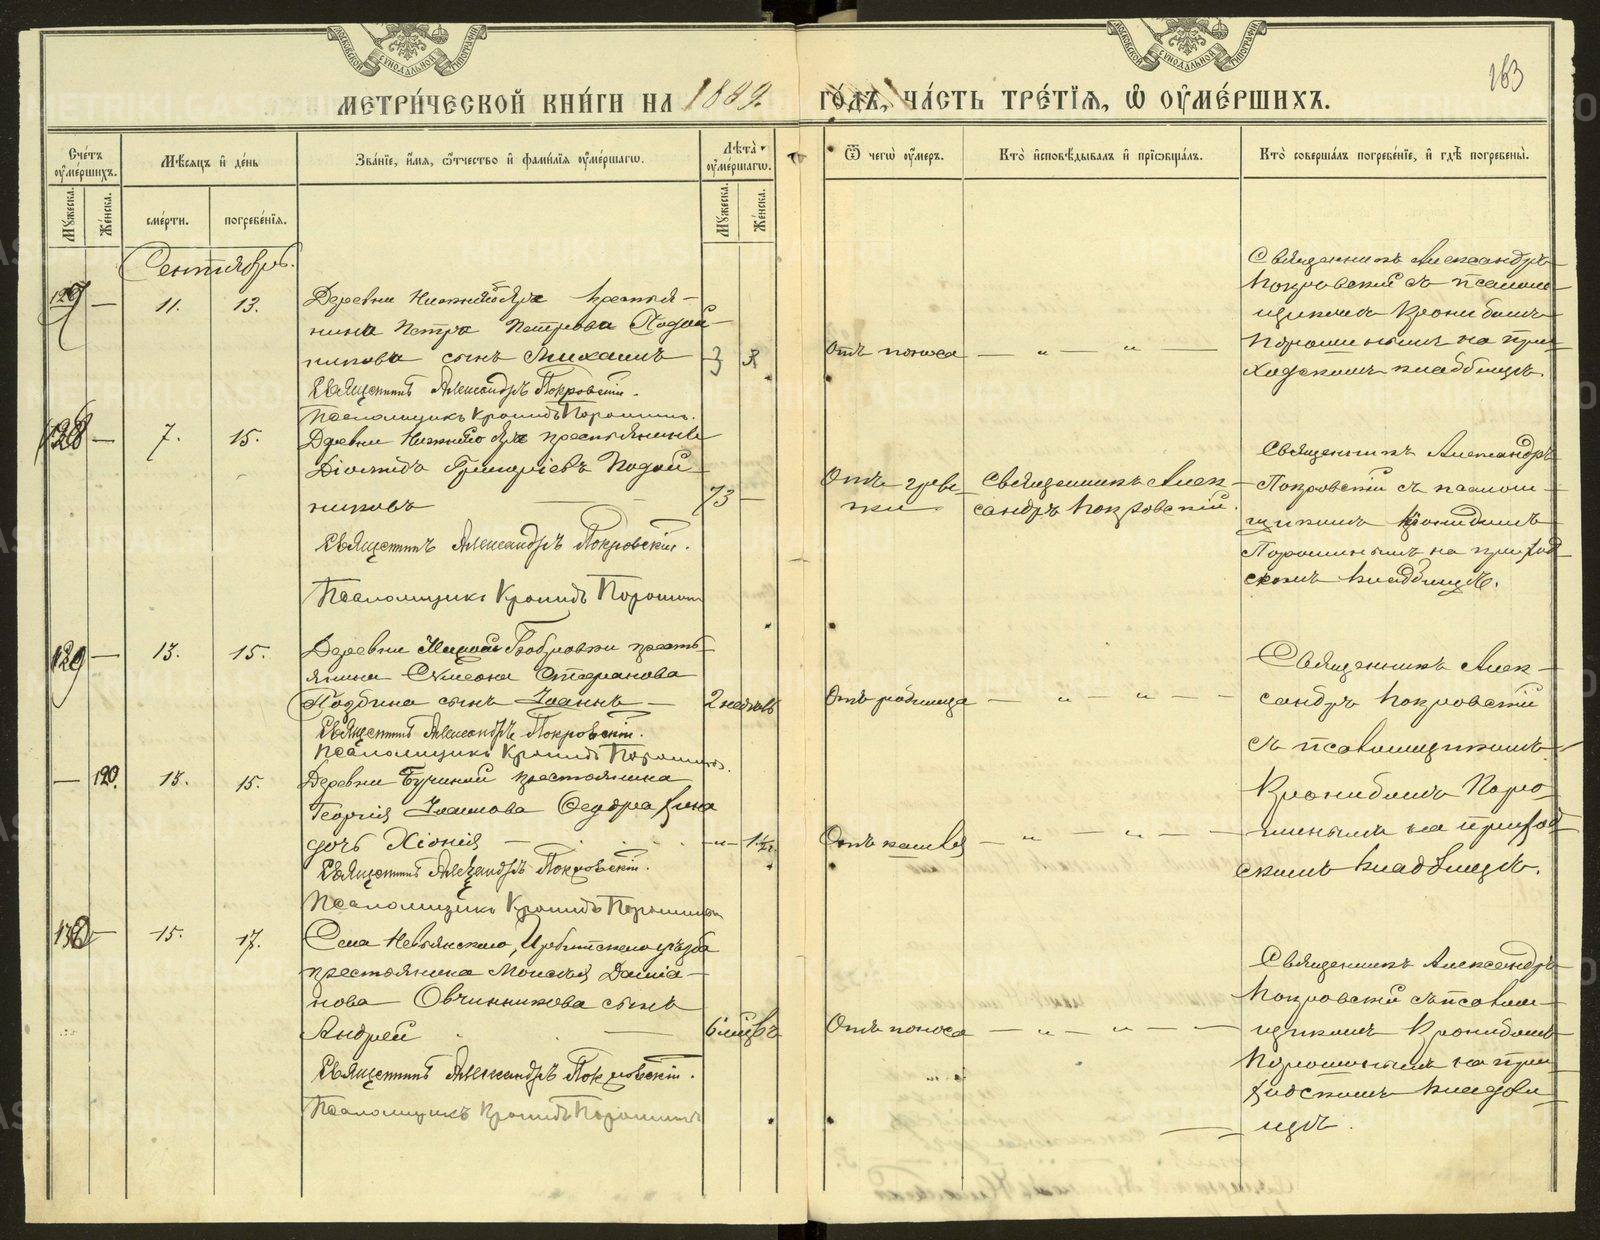 МЕТРИЧЕСКОЙ КНИГИ НА 1889. ГОДЪ, ЧАСТЬ ТРЕТІЯ, Ѿ ОУМЕРШИХЪ.
163
Счетъ оумершихъ.
Мѣсяцъ и день
Званіе, имя, отчество и фамилія оумершагω.
Лѣта оумершагω.
Ѿ чегω оумеръ.
Кто исповѣдывалъ и пріωбщалъ.
Кто совершалъ погребеніе, и гдѣ погребены.
Мужеска.
Женска.
смерти.
погребенія.
Мужеска.
Женска.
Сентябрь.
127 — 11. 13.
Деревни Нижняго Яра крестья-
нина Петра Петрова Подой-
никова сынъ Михаилъ 3
Священникъ Александръ Покровскій.
Псаломщикъ Кронидъ Порошинъ.
Отъ поноса — „ — „ —
Священникъ Александръ
Покровскій съ псалом-
щикомъ Кронидомъ
Порошинымъ на при-
ходскомъ кладбищѣ.
128 — 7. 15.
Деревни Нижняго Яра крестьянинъ
Діомидъ Григорьевъ Подой-
никовъ — 73 —
Священникъ Александръ Покровскій.
Псаломщикъ Кронидъ Порошинъ
Священникъ Алек-
сандръ Покровскій.
Священникъ Александръ
Покровскій съ псалом-
щикомъ Кронидомъ
Порошинымъ на приход-
скомъ кладбищѣ.
129 — 13. 15.
Деревни Бобровки кресть-
янина Симеона Стефанова
сынъ Іоаннъ — 2 недѣль
Священникъ Александръ Покровскій.
Псаломщикъ Кронидъ Порошинъ.
Отъ родимца — „ — „ — —
Священникъ Алек-
сандръ Покровскій
съ псаломщикомъ
Кронидомъ Поро-
шинымъ на приход-
скомъ кладбищѣ.
— 120. 13. 15.
Деревни крестьянина
Георгія Ѳеодра хина
дочь Хіонія — „ — 1½
Священникъ Александръ Покровскій.
Псаломщикъ Кронидъ Порошинъ
Отъ кашля — „ — „ — —
130 — 15. 17.
Села Невьянскаго, Ирбитскаго уѣзда
крестьянина Моисея Даміа-
нова Овчинникова сынъ
Андрей — 6 мѣсцъ
Священникъ Александръ Покровскій.
Псаломщикъ Кронидъ Порошинъ
Отъ поноса — „ — „ — —
Священникъ Александръ
Покровскій съ псалом-
щикомъ Кронидомъ
Порошинымъ на при-
ходскомъ кладби-
щѣ.